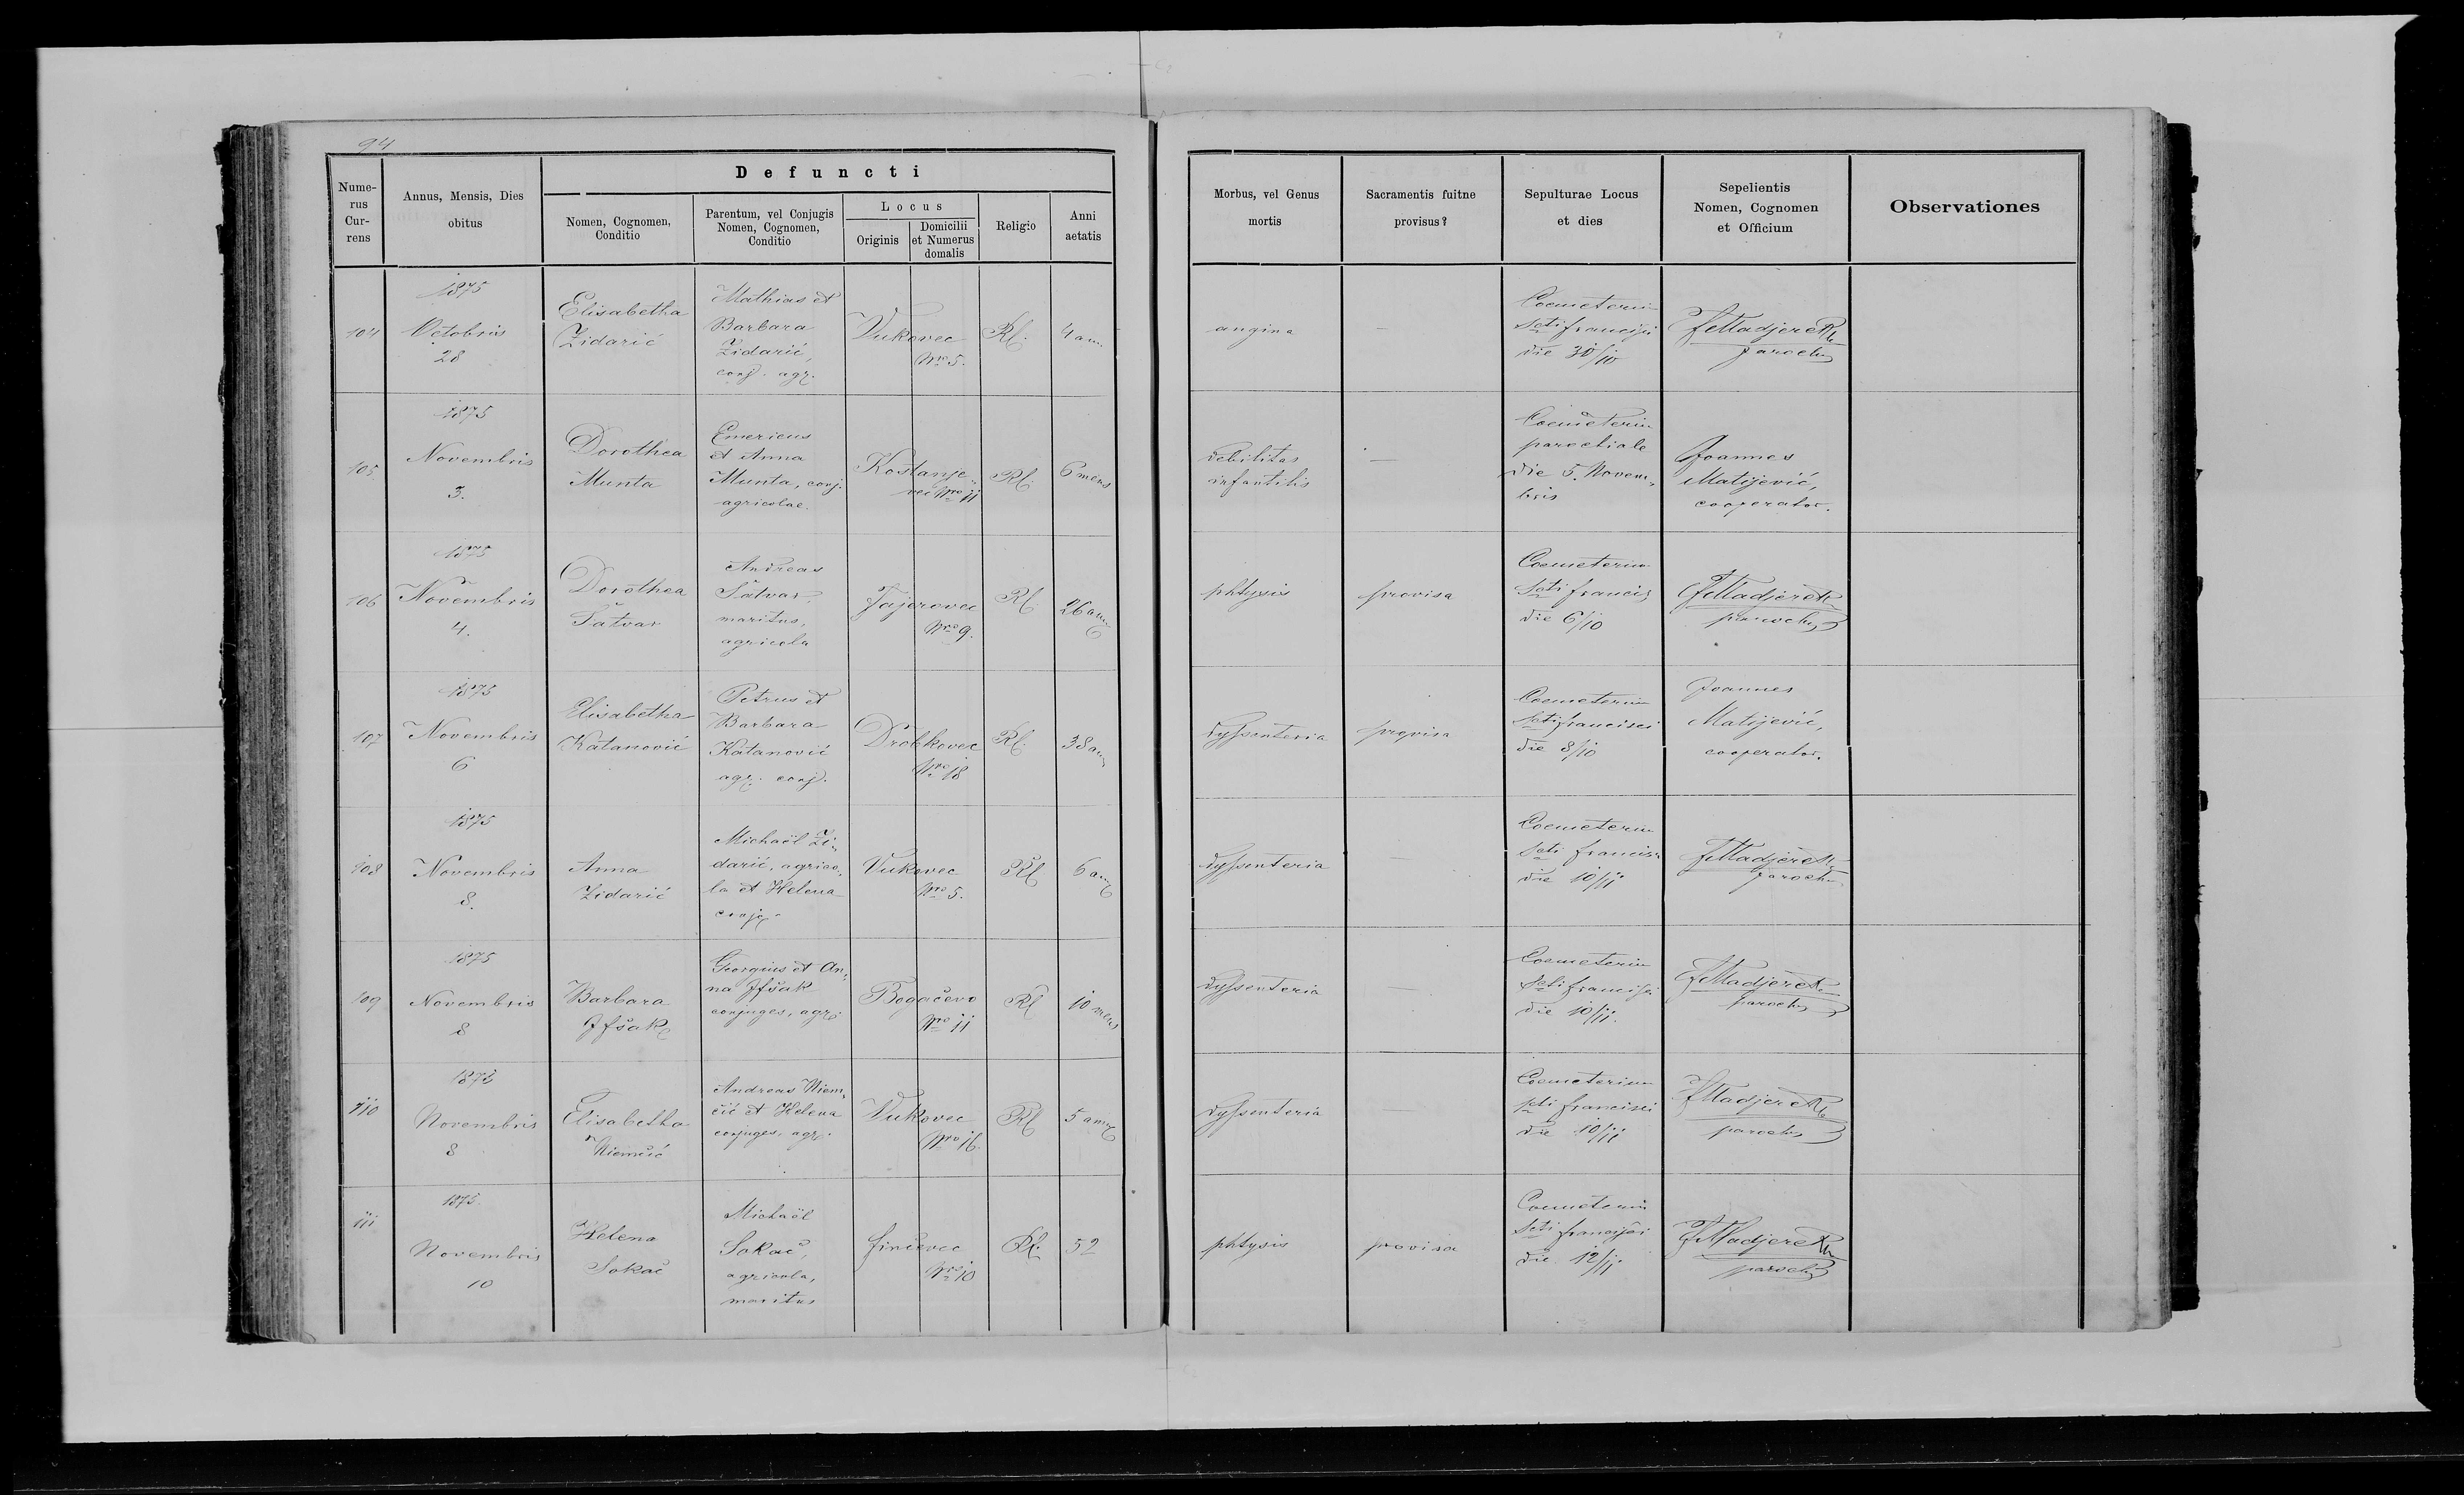 94
Defuncti
Nume-
rus
Cur-
rens
Annus, Mensis, Dies
obitus
Nomen, Cognomen,
Conditio
Parentum, vel Conjugis
Nomen, Cognomen,
Conditio
Locus
Originis
Domicilii
et Numerus
domalis
Religio
Anni
aetatis
Morbus, vel Genus
mortis
Sacramentis fuitne
provisus?
Sepulturae Locus
et dies
Sepelientis
Nomen, Cognomen
et Officium
Observationes
104
1875
Octobris
28
Elisabetha
Židarić
Mathias et
Barbara
Židarić,
conj. agr.
Vukovec
Nro 5.
Rk.
4 ann.
angina
—
Coemeterium
Scti Francisci
die 30/10
parochus
105
1875
Novembris
3.
Dorothea
Munta
Emericus
et Anna
Munta, conj.
agricolae.
Kostanje„
vec Nro 11
Rk.
6 mens
debilitas
infantilis
—
Coemeterium
parochiale
die 5. Novem„
bris
Joannes
Matijević,
cooperator.
106
1875
Novembris
4.
Dorothea
Šatvar
Andreas
Šatvar
maritus,
agricola
Jajerovec
Nro 9.
Rk.
26 ann
phtysis
provisa
Coemeterium
Scti Francis
die 6/10
parochus
107
1875
Novembris
6
Elisabetha
Katanović
Petrus et
Barbara
Katanović
agr. conj.
Drobkovec
Nro 18
Rk.
38 ann
dyssenteria
provisa
Coemeterium
Scti Francisci
die 8/10
Joannes
Matijević,
cooperator.
108
1875
Novembris
8.
Anna
Židarić
Michaël Ži„
darić, agrico„
la et Helena
conj.
Vukovec
Nro 5.
Rk
6 ann
dyssenteria
—
Coemeterium
Scti Francisci
die 10/11
parochus
109
1875
Novembris
8
Barbara
Georgius et An„
na
conjuges, agr.
Bogačevo
Nro 11
Rk
10 mens
dyssenteria
—
Coemeterium
Scti Francisci
die 10/11.
parochus
110
1875
Novembris
8
Elisabetha
Niemčić
Andreas Niem„
čić et Helena
conjuges, agr.
Vukovec
Nro 16.
Rk
5 ann
dyssenteria
—
Coemeterium
Scti Francisci
die 10/11
parochus
111
1875.
Novembris
10
Helena
Sokač
Michaël
Sokač,
agricola,
maritus
Finčevec
Nro 10
Rk.
52
phtysis
provisa
Coemeterium
Scti Francisci
die 12/11
parochus